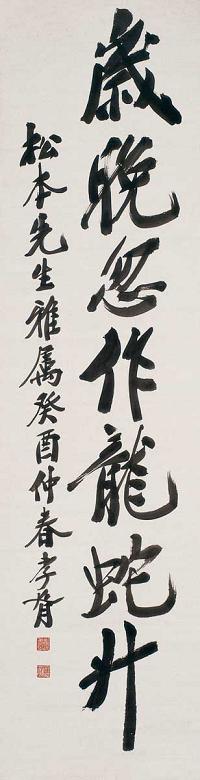 歲晚忽作龍蛇升
松本先生雅属癸酉仲春孝胥